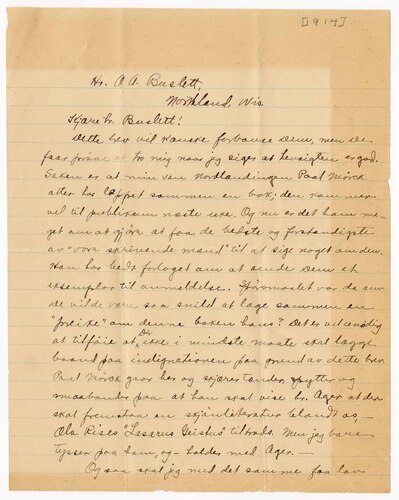 [1914]
Hr. O. A. Buslett,
Northland, Wis.
Kjære hr. Buslett!
Dette brev vil kanske forbause Dem, men De
faar prøve at tro mig naar jeg siger at hensigten er god.
Saken er at min ven Nordlandingen Paal Mørck
atter har løppet sammen en bok; den kommer
vel til publikum næste uke. Og nu er det ham me-
get om at gjøre at faa de bedste og forstandigste
av "vore skrivende mænd" til at sige noget om den.
Han har bedt forlaget om at sende Dem et
eksemplar til anmeldelse. Spørsmaalet var da om
De vilde være saa snild at lage sammen en
"preike" om denne boken hans? Det er unødvendig
at tilføie at De ikke i mindste maate skal lægge
baand paa indignationen paa grund av dette brev.
Paal Mørck gaar her og skjærer tænder, spytter og
maabander paa at han skal vise hr. Ager at der
skal fremstaa en skjønliteratur blandt os,—
Ola Rises "Lasarus" tiltrods. Men jeg bare
tysser paa ham, og – holder med Ager.—
Og saa skal jeg med det samme faa lov